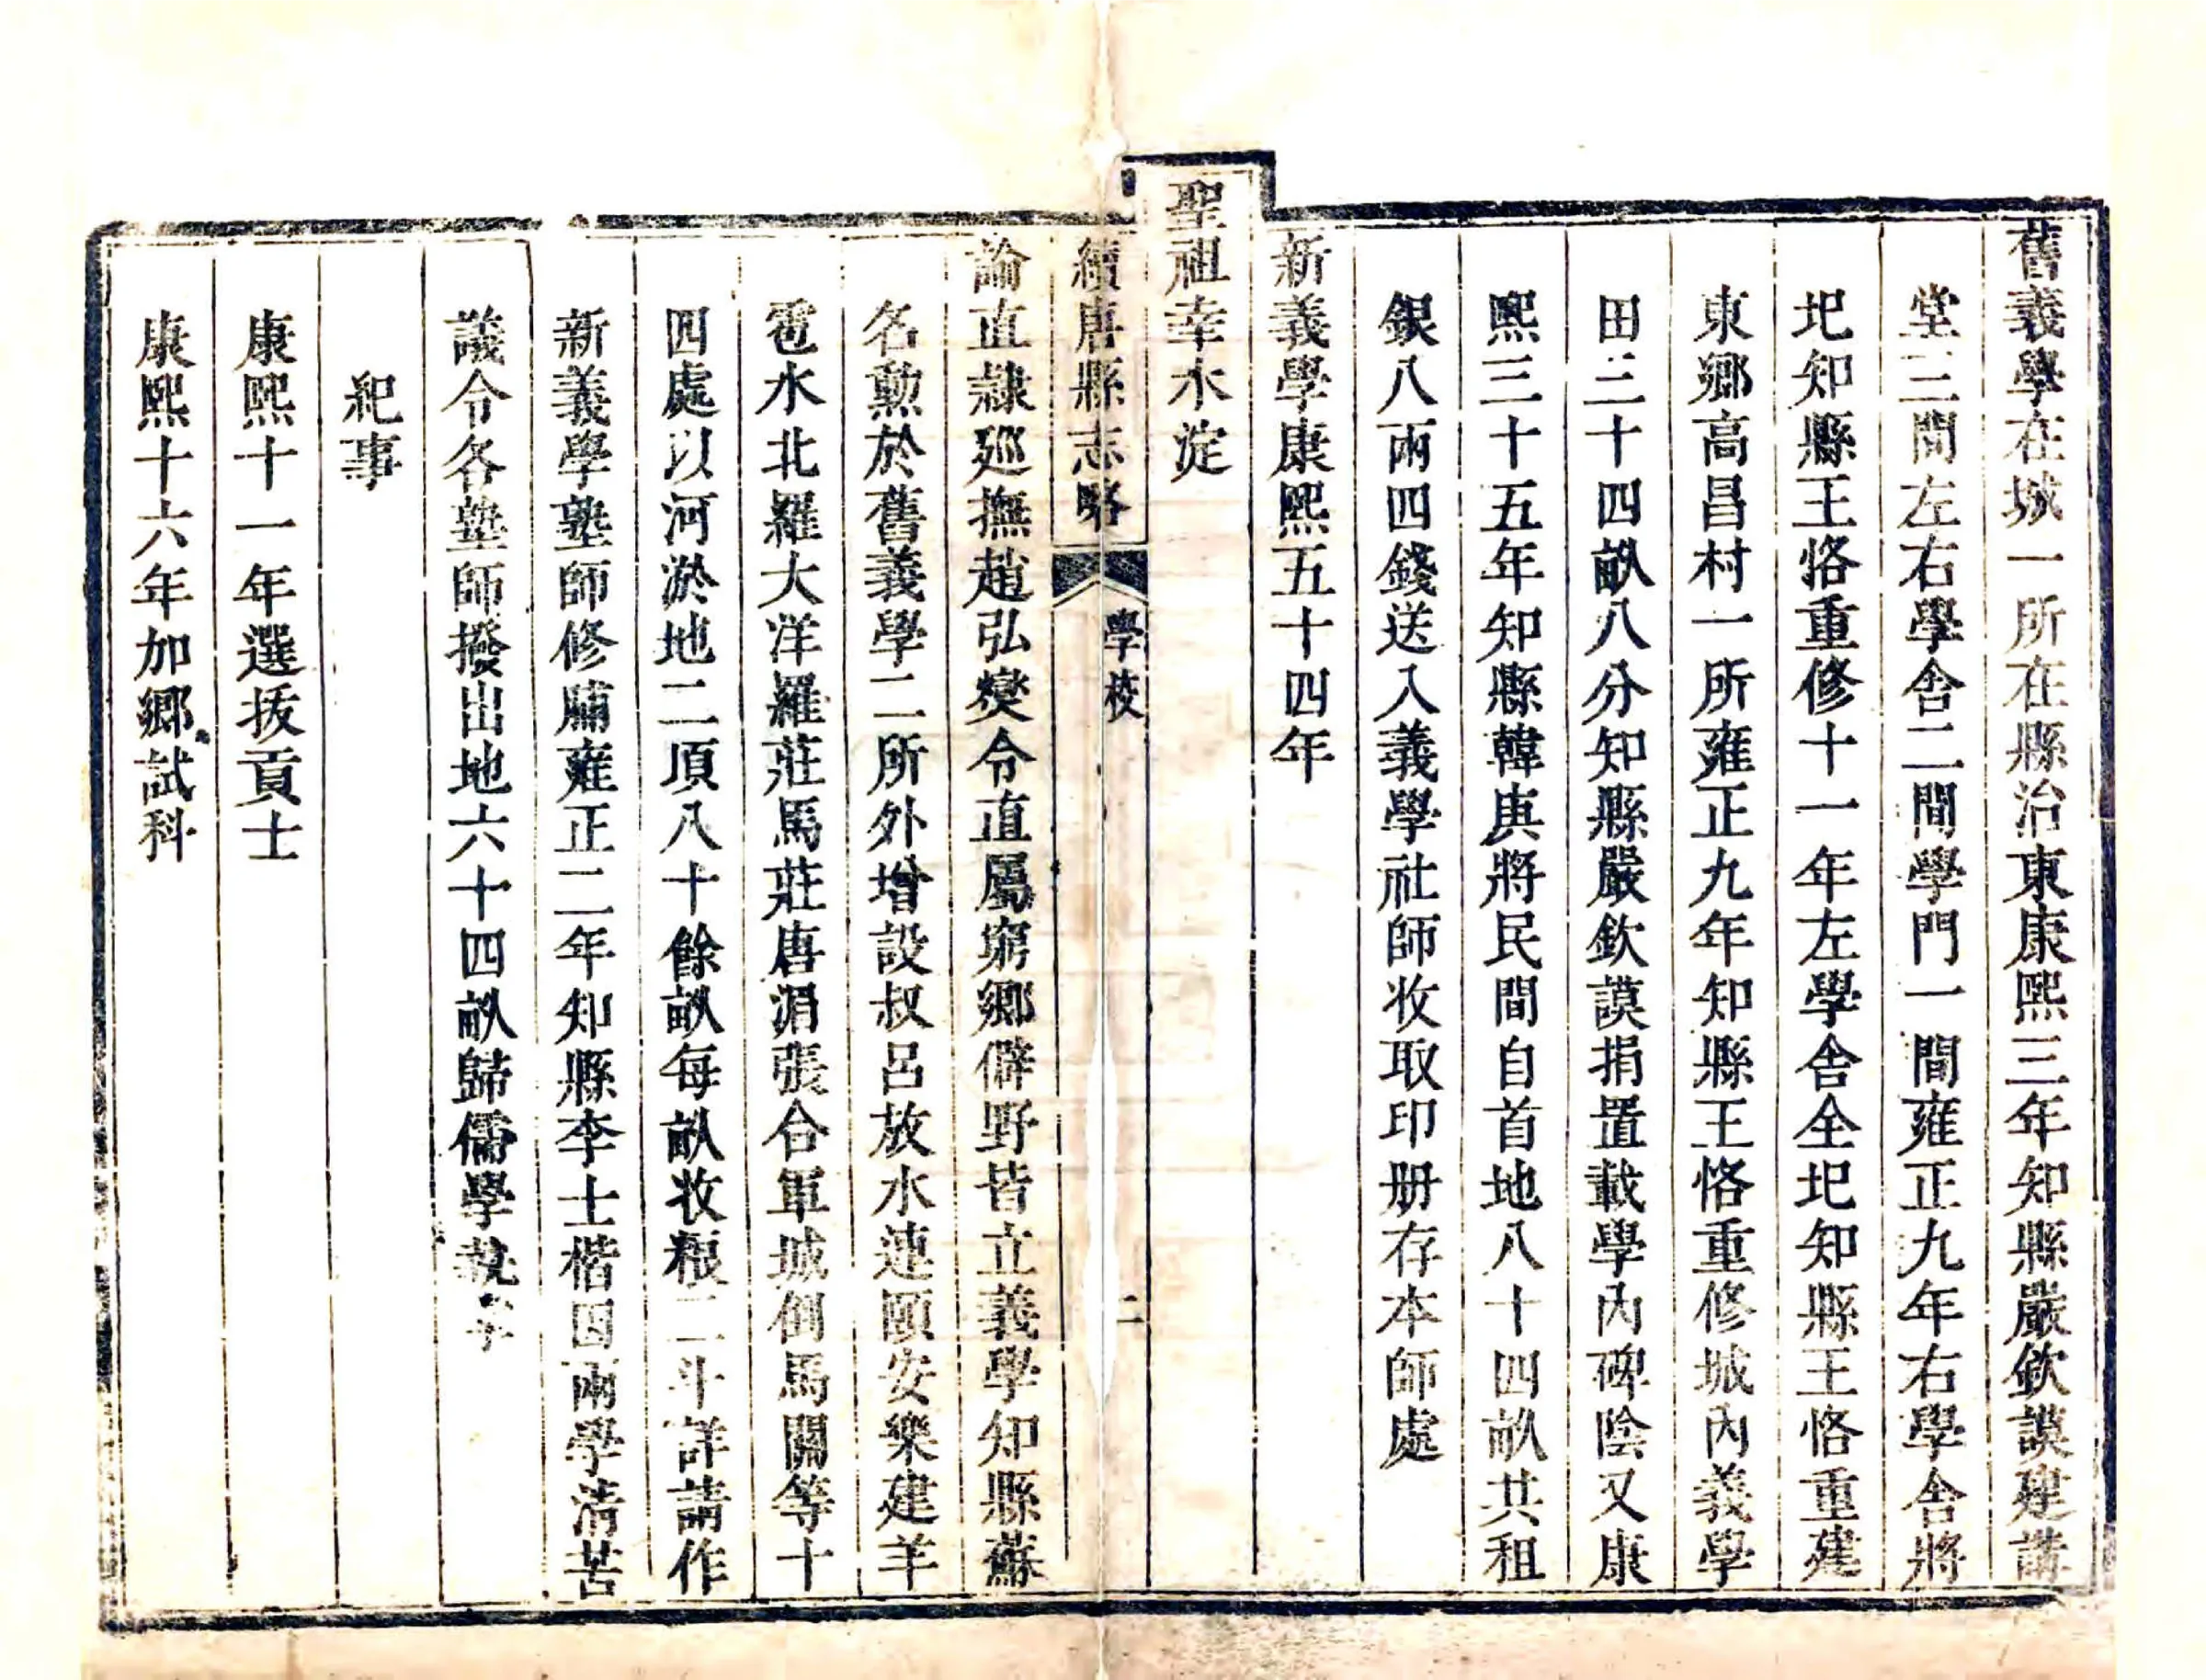 舊義學在城一所在縣治東康熙三年知縣嚴欽謨建講
堂三間左右學舍二間學門一間雍正九年右學舍將
圯知縣王恪重修十一年左學舍全圯知縣王恪重建
東鄉高昌村一所雍正九年知縣王恪重修城內義學
田三十四畝八分知縣嚴欽謨捐置載學內碑陰又康
熙三十五年知縣韓庾將民間自首地八十四畝共租
銀八兩四錢送入義學社師收取印册存本師處
新義學康熙五十四年
聖祖幸水淀
續唐縣志略 學校 二
諭直隸廵撫趙弘燮令直屬窮鄉僻野皆立義學知縣蘇
名勲於舊義學二所外增設叔呂放水連頤安樂建羊
雹水北羅大洋羅莊馬莊唐湄張合軍城倒馬關等十
四處以河淤地二頃八十餘畝每畝收糧二斗詳請作
新義學塾師修脯雍正二年知縣李士楷因兩學清苦
議令各塾師撥出地六十四畝歸儒學
紀事
康熙十一年選拔貢士
康熙十六年加鄉試科